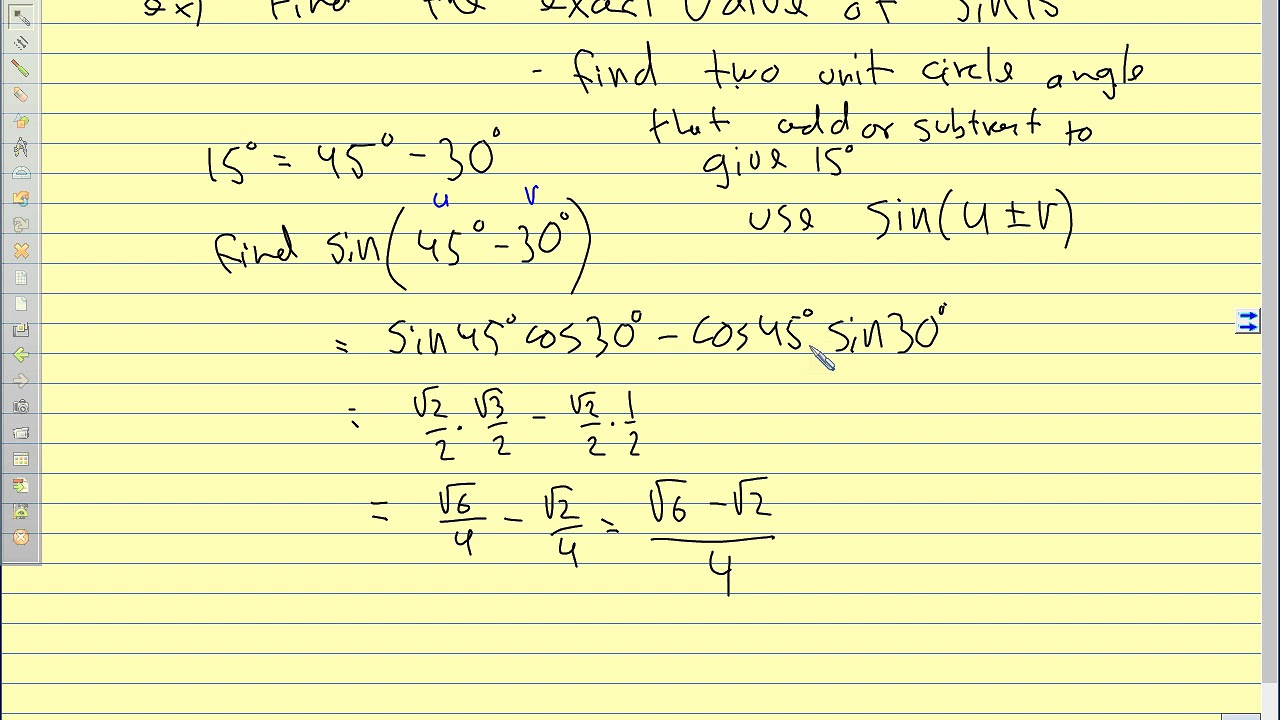 ex) Find the exact value of sin15
- find two unit circle angle
that add or subtract to
give 15°
15° = 45° - 30°
u v
use sin(u ± v)
find sin(45° - 30°)
= sin45° cos30° - cos45° sin30°
= √2/2 · √3/2 - √2/2 · 1/2
= √6/4 - √2/4 = √6 - √2/4